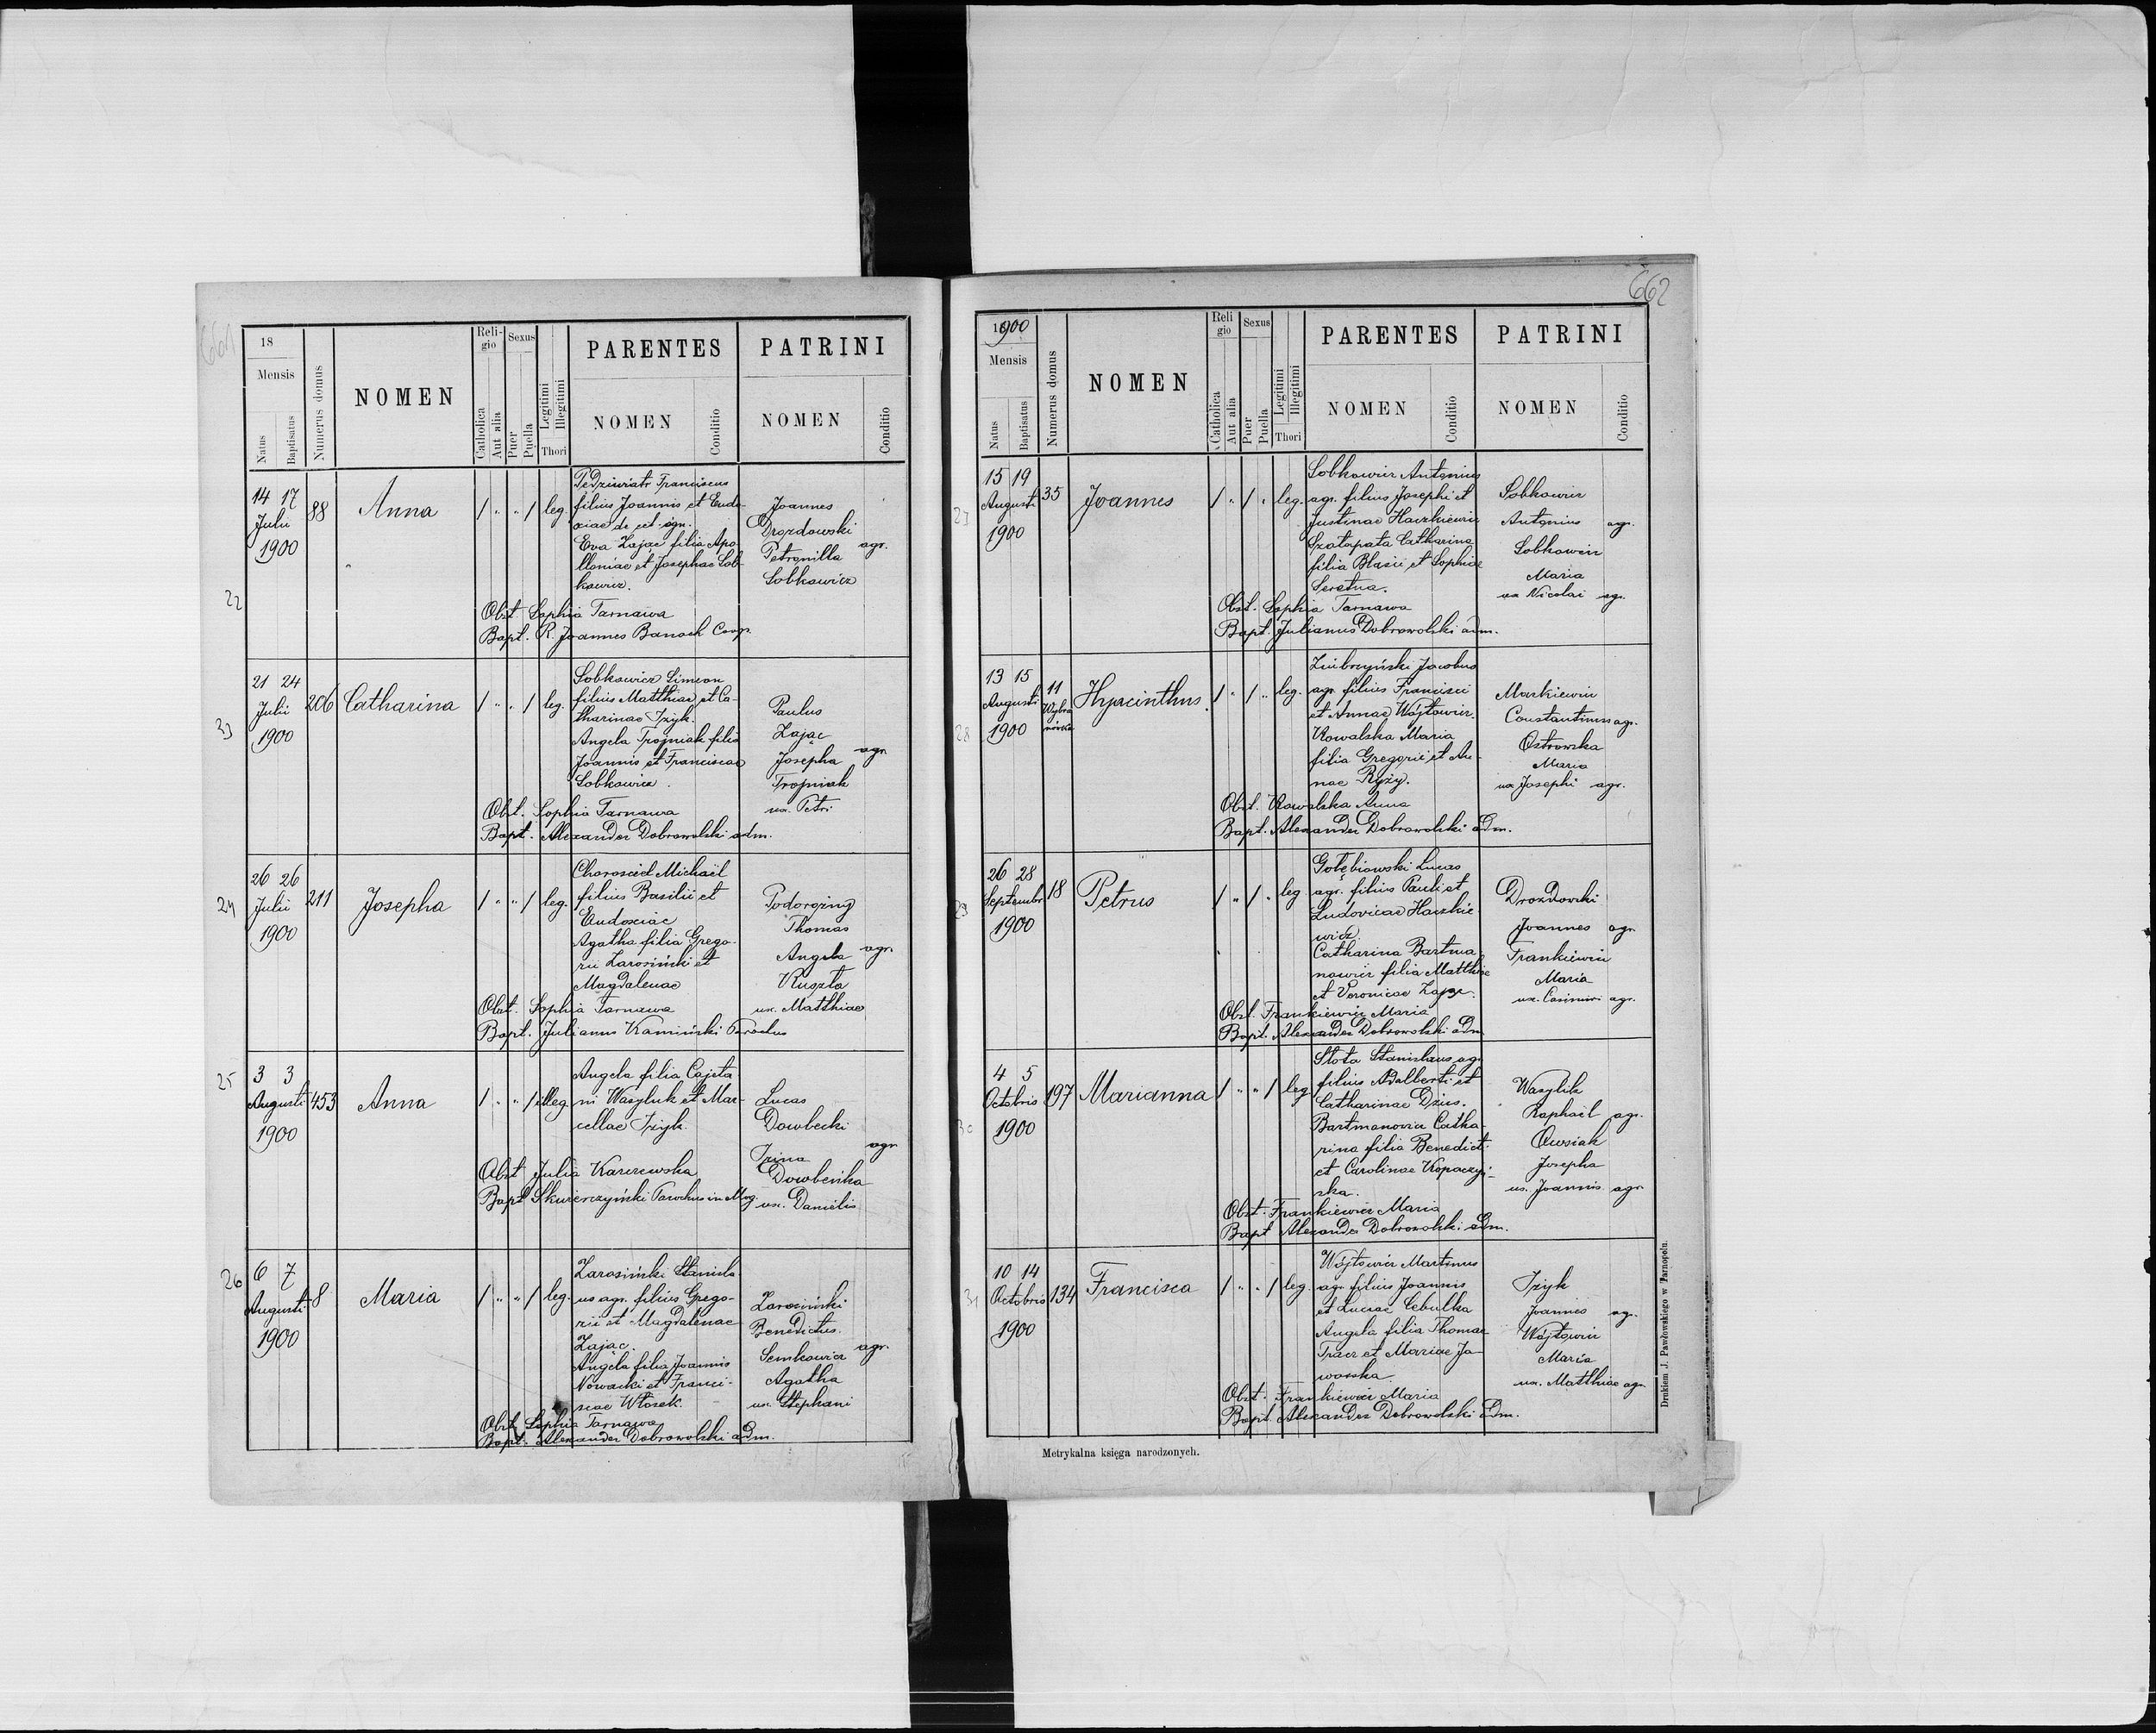 661
18
Mensis
Natus
Baptisatus
Numerus domus
NOMEN
Religio
Catholica
Aut alia
Sexus
Puer
Puella
Legitimi
Illegitimi
Thori
PARENTES
NOMEN
Conditio
PATRINI
NOMEN
Conditio
22
14 17
Julii
1900
88
Anna
/ " " / leg.
Pedziwiatr Franciscus
filius Joannis et Eudo-
xiae
Eva Zajac filia Apo-
lloniae et Josephae Sob-
kowicz.
Joannes
Drozdowski
agr.
Petronilla
Sobkowicz
Obst. Sophia Tarnawa
Bapt. R. Joannes Banach Coop.
23
21 24
Julii
1900
206
Catharina
/ " " / leg.
Sobkowicz Simeon
filius Matthiae et Ca-
tharinae Izyk.
Angela Trojniak filia
Joannis et Franciscae
Sobkowicz.
Paulus
Zając
agr.
Josepha
Trojniak
ux. Petri
Obst. Sophia Tarnawa
Bapt. Alexander Dobrowolski adm.
24
26 26
Julii
1900
211
Josepha
/ " " / leg.
Chorosciel Michaël
filius Basilii et
Eudoxiae
Agatha filia Grego-
rii Zarosiński et
Magdalenae
Podorożny
Thomas
Angela agr.
Kuszta
ux. Matthiae
Obst. Sophia Tarnawa
Bapt. Julianus Kamiński Parochus
25
3 3
Augusti
1900
453
Anna
/ " " / illeg.
Angela filia Cajeta
ni Wasyluk et Mar-
cellae Izyk.
Lucas
Dowbecki
agr.
Irina
Dowbeńka
ux. Danielis
Obst Julia Karczewska
Bapt Skwierczyński Parochus in Mog.
26
6 7
Augusti
1900
8
Maria
/ " " / leg.
Zarosiński Stanisla
us agr. filius Grego-
rii et Magdalenae
Zając.
Angela filia Joannis
Nowacki et Franci-
scae Włosek.
Zarosiński
Benedictus.
Semkowicz agr.
Agatha
ux. Stephani
Obst Sophia Tarnawa
Bapt. Alexander Dobrowolski adm.
662
1900
Mensis
Natus
Baptisatus
Numerus domus
NOMEN
Religio
Catholica
Aut alia
Sexus
Puer
Puella
Legitimi
Illegitimi
Thori
PARENTES
NOMEN
Conditio
PATRINI
NOMEN
Conditio
27
15 19
Augusti
1900
35
Joannes
/ " / " leg.
Sobkowicz Antonius
agr. filius Josephi et
Justinae Haczkiewicz
Szatapata Catharina
filia Blasii et Sophiae
Seretna.
Sobkowicz
Antonius agr.
Sobkowicz
Maria
ux Nicolai agr.
Obst. Sophia Tarnawa
Bapt. Julianus Dobrowolski adm.
28
13 15
Augusti
1900
11
Wybra
nówka
Hyacinthus.
/ " / " leg.
Ziubrzyński Jacobus
agr. filius Francisci
et Annae Wójtowicz.
Kowalska Maria
filia Gregorii et An-
nae Ryży.
Markiewicz
Constantinus agr.
Ostrowska
Maria
ux Josephi agr.
Obst. Kowalska Anna
Bapt. Alexander Dobrowolski adm.
29
26 28
Septembr
1900
18
Petrus
/ " / " leg
Gołębiowski Lucas
agr. filius Pauli et
Ludovicae Haczkie
wicz.
Catharina Bartma
nowicz filia Matthiae
et Veronicae Zając.
Drozdowski
Joannes agr.
Frankiewicz
Maria
ux. Casimiri agr.
Obst. Frankiewicz Maria
Bapt. Alexander Dobrowolski adm
30
4 5
Octobris
1900
197
Marianna
/ " " / leg
Słota Stanislaus agr
filius Adalberti et
Catharinae Dzius.
Bartmanowicz Catha-
rina filia Benedicti
et Carolinae Kopaczyń-
ska.
Wasylik
Raphaël agr.
Owsiak
Josepha
ux. Joannis agr
Obst. Frankiewicz Maria
Bapt Alexander Dobrowolski adm.
31
10 14
Octobris
1900
134
Francisca
/ " " / leg.
Wójtowicz Martinus
agr. filius Joannis
et Luciae Cebulka
Angela filia Thomae
Tracz et Mariae Ja-
worska.
Izyk
Joannes agr.
Wójtowicz
Maria
ux. Matthiae agr.
Obst. Frankiewicz Maria
Bapt. Alexander Dobrowolski adm.
Metrykalna księga narodzonych.
Drukiem J. Pawłowskiego w Tarnopolu.